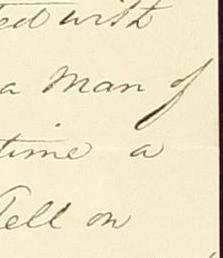 ted with
a man of
time a
Tell on